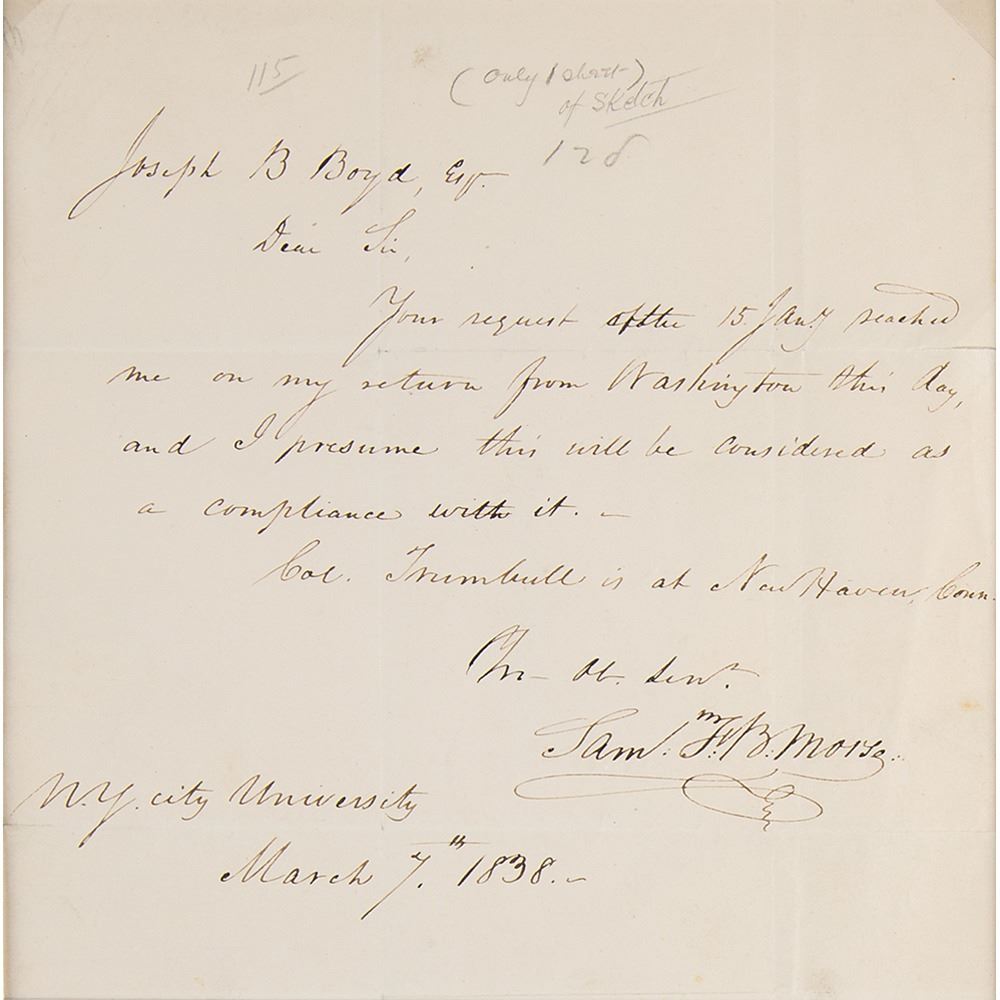 115
(only 1 short)
of sketch
128
Joseph B Boyd, Esqr.
Dear Sir,
Your request of the 15 Jany reached
me on my return from Washington this day,
and I presume this will be considered as
a compliance with it. –
Col. Trumbull is at New Haven, Conn.
Yr Ob. Servt.
Saml. F. B. Morse.
N.Y. city University
March 7.th 1838.–